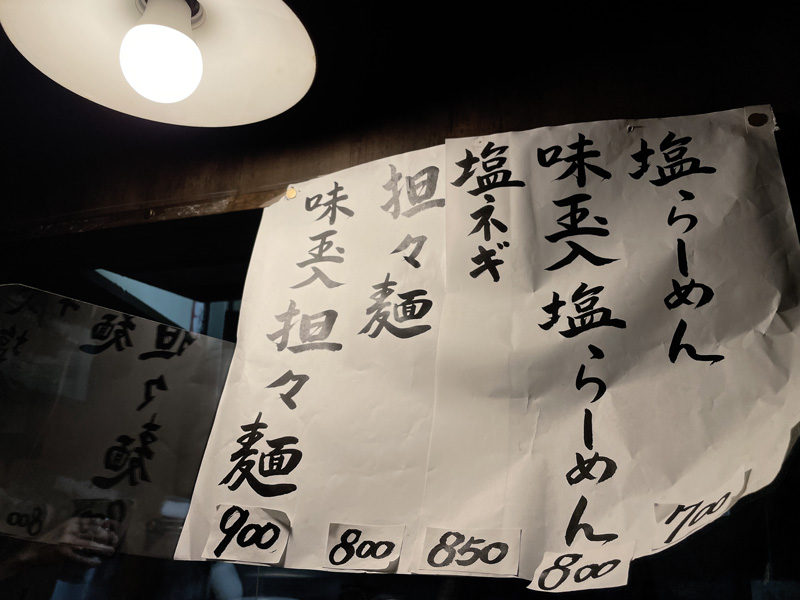 塩らーめん
700
味玉入塩らーめん
800
塩ネギ
850
担々麺
800
味玉入担々麺
900